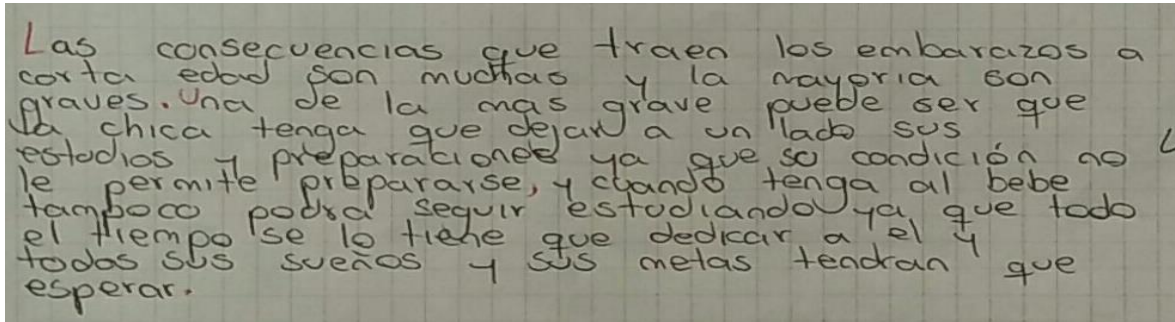 Las consecuencias que traen los embarazos a
corta edad son muchas y la mayoria son
graves. Una de la mas grave puede ser que
la chica tenga que dejar a un lado sus
estudios y preparaciones ya que su condición no
le permite prepararse, y cuando tenga al bebe
tampoco podra seguir estudiando ya que todo
el tiempo se lo tiene que dedicar a el y
todos sus sueños y sus metas tendran que
esperar.